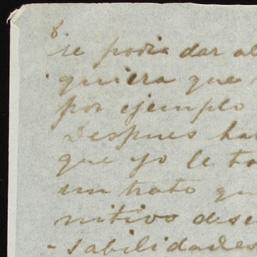 se podia dar al
quiera que
por ejemplo
Despues ha
que yo le to
un trato qu
nitivo des
-sabilidades